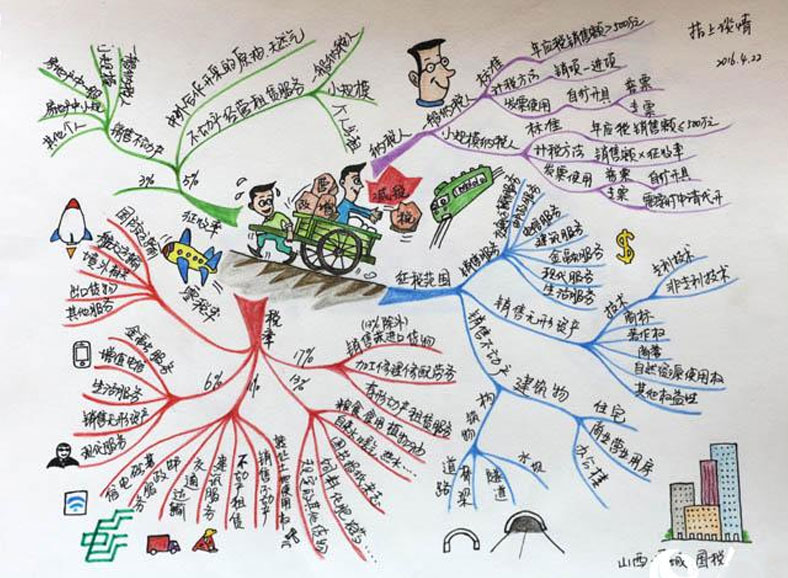 指上谈情
2016.4.22
纳税人
一般纳税人
标准
年应税销售额>500万元
计税方法
销项-进项
发票使用
自行开具
普票
专票
小规模纳税人
标准
年应税销售额≤500万元
计税方法
销售额×征收率
发票使用
普票
自行开具
专票
征收率
5%
中外合作开采的原油、天然气
不动产经营租赁服务
一般纳税人
小规模
个人出租
销售不动产
一般纳税人
小规模
其他个人
3%
减税
税
营
改
增
零税率
国际运输
航天运输
出口货物
其他服务
税率
17%
(13%除外)
销售或进口货物
加工修理修配劳务
有形动产租赁服务
13%
粮食食用植物油
6%
金融服务
增值电信
生活服务
销售无形资产
现代服务
基础电信
邮政服务
交通运输
建筑服务
不动产租赁
销售不动产
征税范围
销售服务
邮政服务
电信服务
建筑服务
金融服务
现代服务
生活服务
销售无形资产
技术
专利技术
非专利技术
商标
著作权
商誉
自然资源使用权
其他权益性
销售不动产
建筑物
住宅
商业营业用房
办公楼
构筑物
道路
桥梁
隧道
水坝
山西
国税